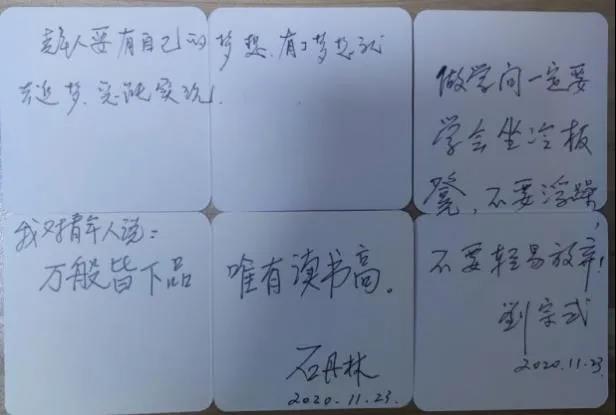 青年人要有自己的梦想,有了梦想就
去追梦,总能实现!
做学问一定要
学会坐冷板
凳,不要浮躁,
不要轻易放弃!
劉宗武
2020.11.23.
我对青年人说:
万般皆下品 唯有读书高。
石丹林
2020.11.23.